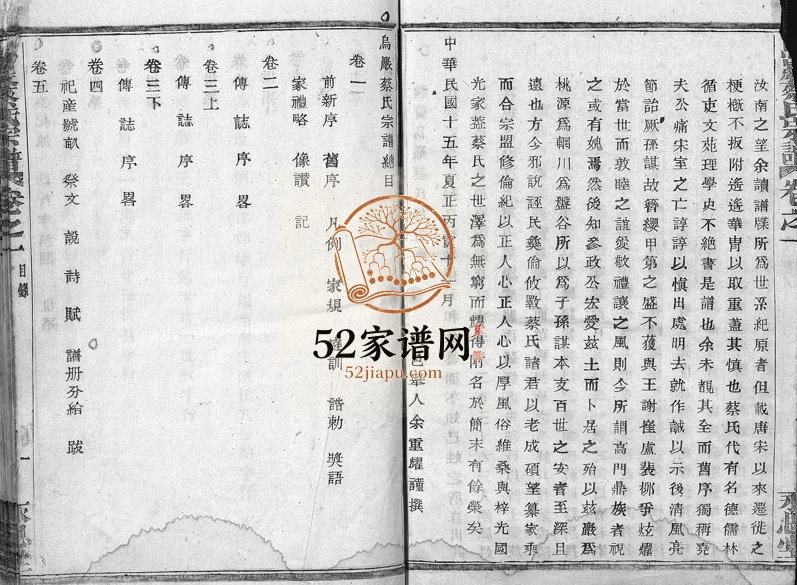 汝南之望余讀譜牒所為世系紀原者但載唐宋以來遷徙之
梗概不扳附遙遙華胄以取重蓋其慎也蔡氏代有名德儒林
循吏文苑理學史不絕書是譜也余未覩其全而舊序獨稱堯
夫公痛宋室之亡諄諄以慎出處明去就作誡以示後清風亮
節詒厥孫謀故簪纓甲第之盛不獲與王謝崔盧裴柳爭炫燿
於當世而敦睦之誼愛敬禮讓之風則今所謂高門鼎族者視
之或有媿焉然後知參政公宏愛茲土而卜居之殆以茲巖為
桃源為輞川為盤谷所以為子孫謀本支百世之安者至深且
遠也方今邪說誣民彝倫攸斁蔡氏諸君以老成碩望纂家乘
而合宗盟修倫紀以正人心正人心以厚風俗維桑與梓光國
光家蓋蔡氏之世澤為無窮而耀得附名於簡末有餘榮矣
中華民國十五年夏正丙寅十 月 邑舉人余重耀謹撰
烏巖蔡氏宗譜總目
卷一
前新序 舊序 凡例 家規 訓 誥勅 獎語
家禮略 像讚 記
卷二
傳 誌 序 畧
卷三上
傳 誌 序 畧
卷三下
傳 誌 序 畧
卷四
祀產號畝 祭文 說 詩 賦 譜册分給 跋
卷五
氏宗譜卷之一
目錄
一
52家谱网
52jiapu.com